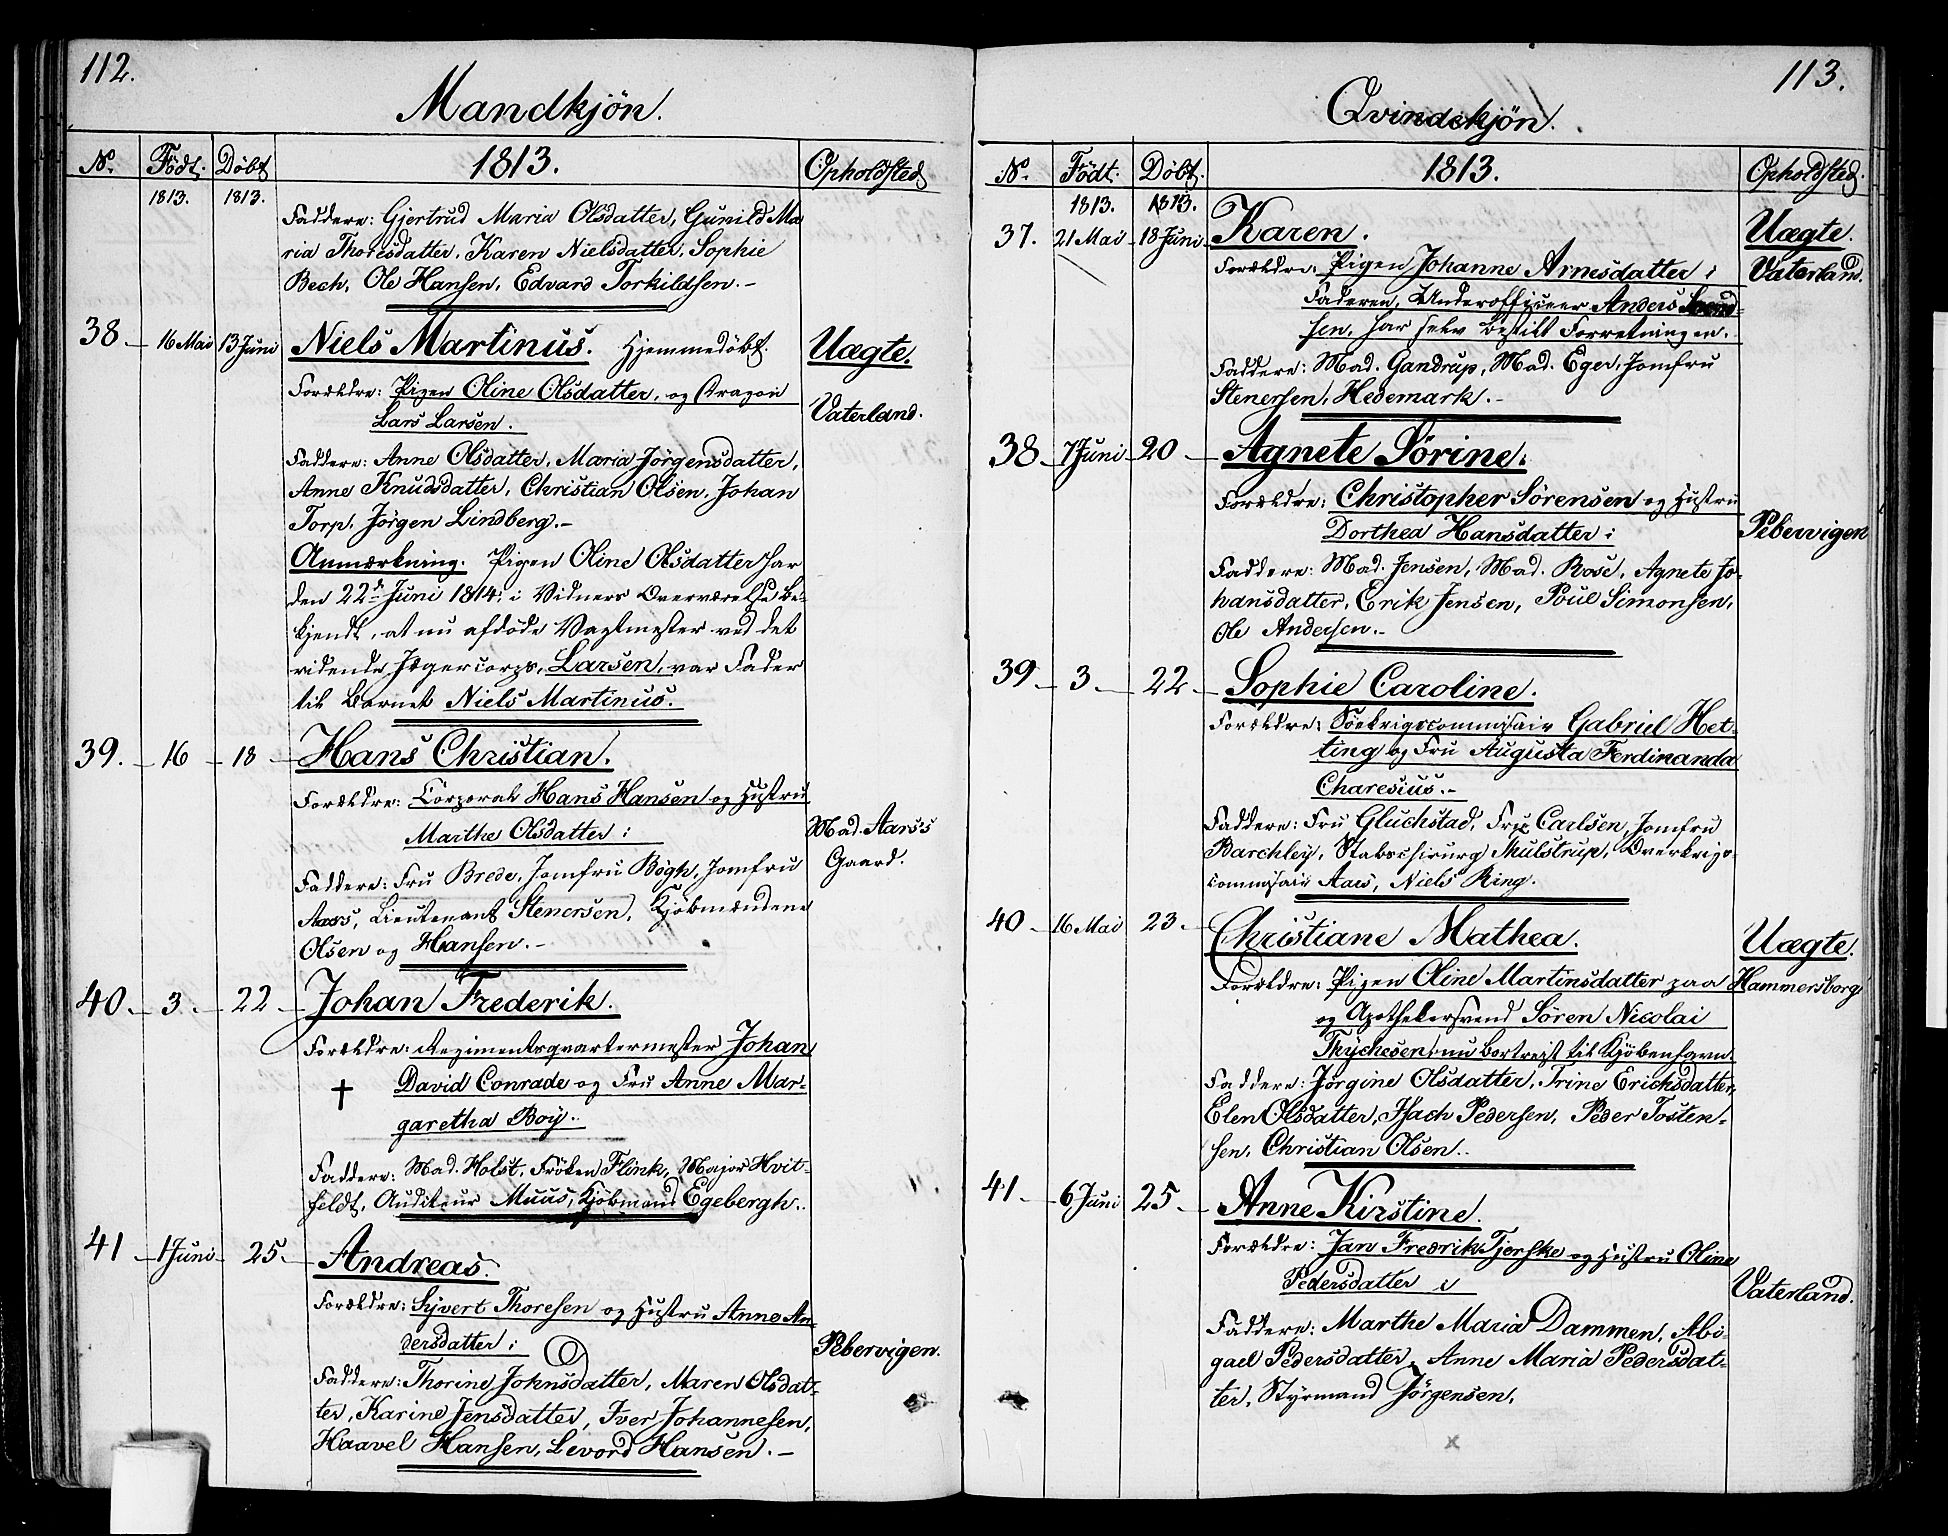 112.
Mandkjön.
No. Födt. Döbt 1813. Opholdsted
1813. 1813.
Faddere: Gjertrud Maria Olsdatter, Gunild Ma
ria Thoresdatter, Karen Nielsdatter, Sophie
Bech, Ole Hansen, Edvard Torkildsen.-
38 16 Mai 13 Juni Niels Martinus. Hjemmedöbt. Uægte.
Forældre: Pigen Oline Olsdatter, og Dragon
Lars Larsen. Vaterland.
Faddere: Anne Olsdatter, Maria Jörgensdatter,
Anne Knudsdatter, Christian Olsen, Johan
Torp, Jörgen Lindberg.-
Anmærkning. Pigen Oline Olsdatter har
den 22de Juni 1814, i Vidners Overværelse be-
kjendt, at nu afdöde Vagtmester ved det
ridende Jægercorps, Larsen, var Fader
til Barnet Niels Martinus.
39. 16 18 Hans Christian.
Forældre: Corporal Hans Hansen og Hustru
Marthe Olsdatter i Mad. Aars's
Gaard.
Faddere: Fru Brede, Jomfru Bögh, Jomfru
Aars, Lieutenant Stenersen, Kjöbmændene
Olsen og Hansen.-
40 3. 22 Johan Frederik.
Forældre: Regimentsqvartermester Johan
† David Conrade og Fru Anne Mar-
garetha Boij.
Faddere: Mad. Holst, Fröken Flink, Major Hvit-
feldt, Auditeur Muus, Kjöbmand Egebergh.
41 1 Juni 25. Andreas.
Forældre: Syvert Thoresen og Hustru Anne An-
dersdatter i Pebervigen.
Faddere: Thorine Johnsdatter, Maren Olsdat-
ter, Karine Jensdatter, Iver Johannesen,
Haavel Hansen, Levord Hansen.-
113.
Qvindekjön.
No. Födt. Döbt. 1813. Opholdsted.
1813. 1813.
37. 21 Mai 18 Juni Karen. Uægte.
Forældre: Pigen Johanne Arnesdatter i Vaterland.
Faderen, Underofficeer Anders Svend-
sen, har selv bestilt Forretningen.
Faddere: Mad. Gandrup, Mad. Eger, Jomfru
Stenersen, Hedemark.-
38 7 Juni 20 Agnete Sörine.
Forældre: Christopher Sörensen og Hustru
Dorthea Hansdatter i Pebervigen
Faddere: Mad. Jensen, Mad. Rose, Agnete Jo-
hansdatter, Erik Jensen, Poul Simonsen,
Ole Andersen.-
39 3. 22 Sophie Caroline.
Forældre: Söekrigscommissair Gabriel Het-
ting og Fru Augusta Ferdinanda
Charesius.-
Faddere: Fru Gluchstad, Fru Carlsen, Jomfru
Barchley, Stabschirurg Thulstrup, Overkrigs-
commissair Aars, Niels Ring.
40 16 Mai 23 Christiane Mathea. Uægte.
Forældre: Pigen Oline Martinsdatter paa Hammersborg
og Apothekersvend Sören Nicolai
Thychesen, nu bortreist til Kjöbenhavn.
Faddere: Jörgine Olsdatter, Trine Erichsdatter,
Elen Olsdatter, Isach Pedersen, Peder Tosten-
sen, Christian Olsen.
41 6 Juni 25 Anne Kirstine.
Forældre: Jan Fredrik Tjerske og Hustru Oline
Pedersdatter i Vaterland.
Faddere: Marthe Maria Dammen, Abi-
gael Pedersdatter, Anne Maria Pedersdat-
ter, Styrmand Jörgensen,
x